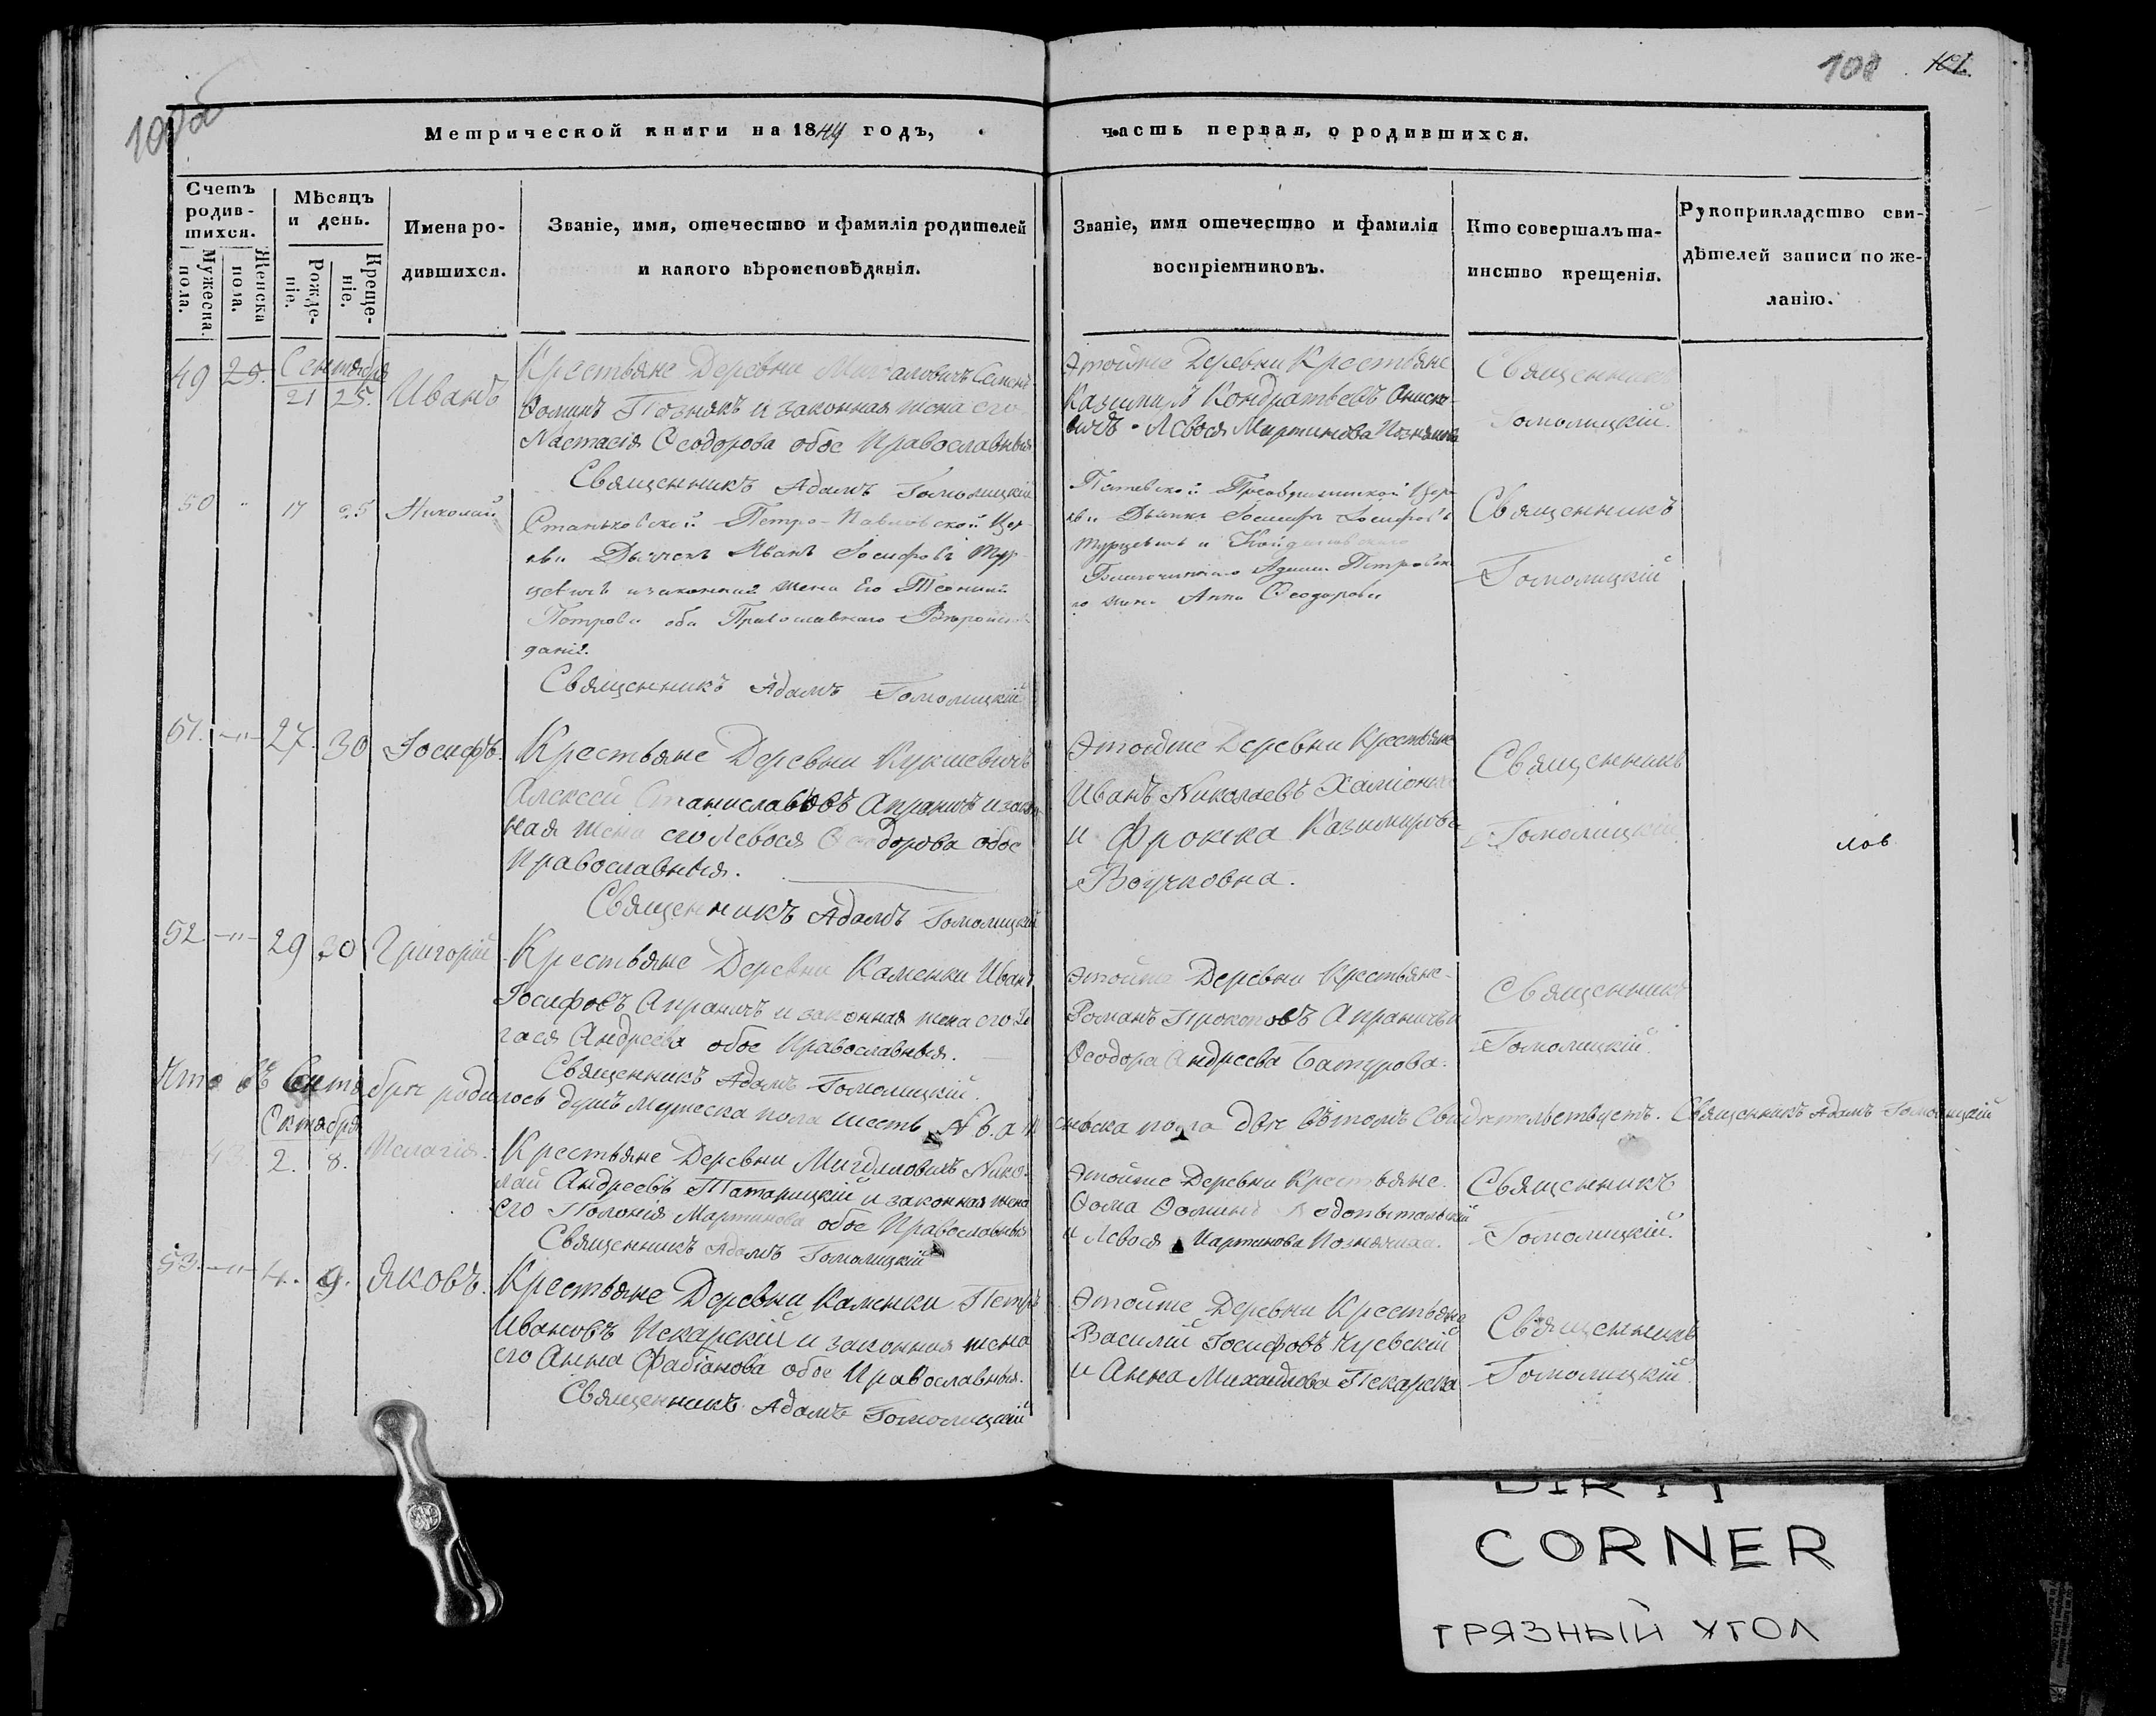 100об
101 101.
Метрической книги на 1844 годъ, часть первая, о родившихся.
Счетъ родив-шихся.
Мужеска пола.
Женска пола.
Мѣсяцъ и день.
Рожде-ніе.
Креще-ніе.
Имена ро-дившихся.
Званіе, имя, отечество и фамилія родителей
и какого вѣроисповѣданія.
Званіе, имя отечество и фамилія
воспріемниковъ.
Кто совершалъ та-
инство крещенія.
Рукоприкладство сви-
дѣтелей записи по же-
ланію.
49 25. Сентября 21 25. Иванъ
Крестьяне Деревни Семенъ
Ѳоминъ Познякъ и законная жена его
Настасія Ѳеодорова обое Православныя
Священникъ Адамъ Гомолицкій
Этойже Деревни Крестьяне
Казимиръ Кондратьевъ Аниске-
вичъ Левося Мартинова
Священникъ
Гомолицкій.
50 " 17 25 Николай
Станьковской Петро-Павловской Цер-
кви Дьячекъ Иванъ Іосифовъ Тур-
цевичъ и законная жена Его
Петрова оба Православнаго Вѣроиспо-
данія.
Священникъ Адамъ Гомолицкій
Цер-
кви Дьячекъ Іосифъ Іосифовъ
Турцевичъ и
Благочиннаго Адама
жена Анна Ѳеодорова
Священникъ
Гомолицкій
51. -"- 27. 30 Іосифъ.
Крестьяне Деревни Кукшевичъ
Алексей Станиславовъ Апраничъ и закон
ная жена его Левося Ѳеодорова обое
Православныя.
Священникъ Адамъ Гомолицкій
Этойже Деревни Крестьяне
Иванъ Николаевъ
и Фрокка Казимирова
Священникъ
Гомолицкій
лов
52. -"- 29 30 Григорій
Крестьяне Деревни Каменки Иванъ
Іосифовъ Апраничъ и законная жена его
гася Андреева обое Православныя.
Священникъ Адамъ Гомолицкій.
Этойже Деревни Крестьяне
Романъ Прокоповъ Апраничъ и
Ѳеодора Андреева Батурова.
Священникъ
Гомолицкій.
Что въ Сентябрѣ родилось душъ мужеска пола шесть № 6. а женска пола двѣ въ томъ Свидѣтельствуетъ. Священникъ Адамъ Гомолицкій
Октября
2. 8. Пелагія.
Крестьяне Деревни Мигдаловичъ Нико-
лай Андреевъ Татарицкій и законная жена
Его Полонія Мартинова обое Православныя
Священникъ Адамъ Гомолицкій
Этойже Деревни Крестьяне.
Ѳома Ѳоминъ
и Левося Мартинова Познячиха.
Священникъ
Гомолицкій.
53. -"- 4. 9. Яковъ.
Крестьяне Деревни Каменки Петръ
Ивановъ Пекарскій и законная жена
его Анна Фабіанова обое Православныя.
Священникъ Адамъ Гомолицкій
Этойже Деревни Крестьяне
Василій Іосифовъ
и Анна Михайлова Пекарска
Священникъ
Гомолицкій.
DIRTY
CORNER
ГРЯЗНЫЙ УГОЛ